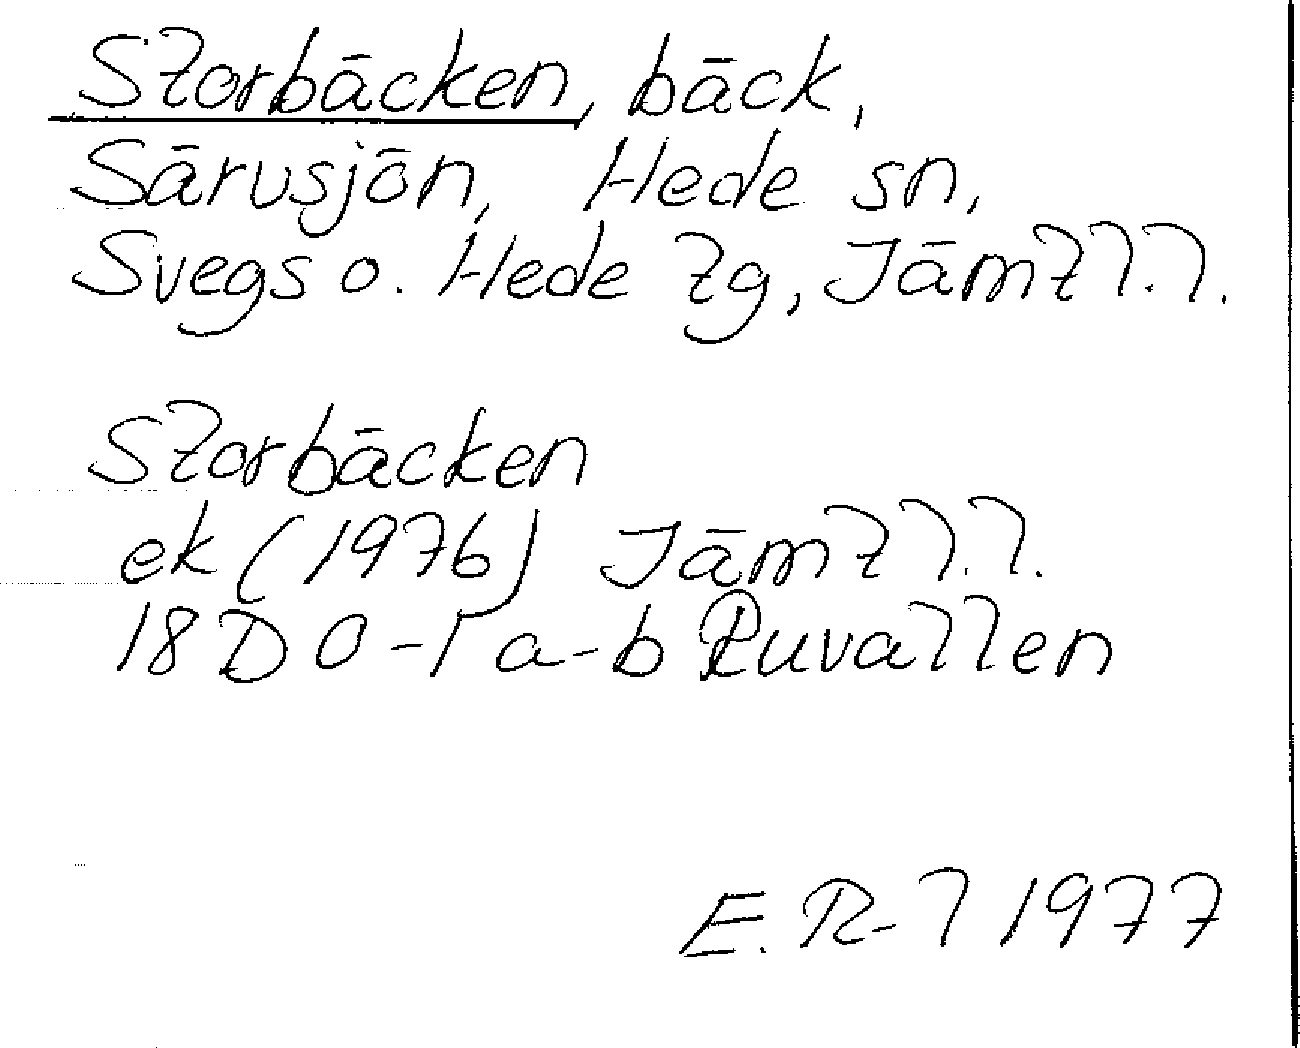 Storbäcken, bäck,
Särvsjön, Hede sn,
Svegs o. Hede tg, Jämtl.l.
Storbäcken
ek (1976) Jämtl.l.
18D 0-1 a-b Ruvallen
E. R-l 1977